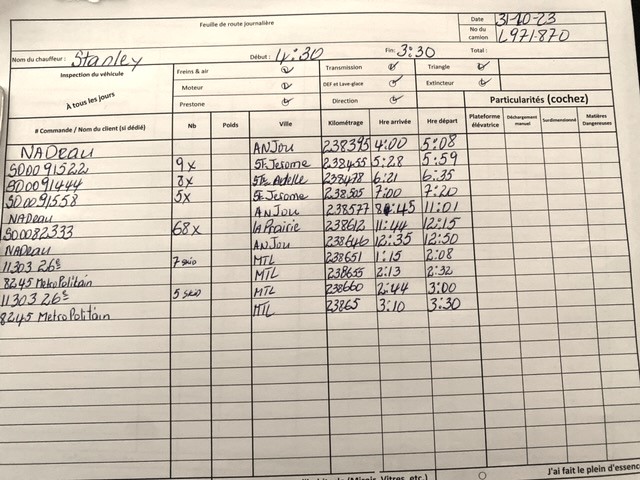 Feuille de route journalière
Date 31-10-23
No du camion L971-870
Nom du chauffeur : Stanley Début : 4:30 Fin: 3:30 Total :
Inspection du véhicule Freins & air Transmission Triangle
À tous les jours Moteur DEF et Lave-glace Extincteur
Prestone Direction Particularités (cochez)
# Commande / Nom du client (si dédié) Nb Poids Ville Kilométrage Hre arrivée Hre départ Plateforme élévatrice Déchargement manuel Surdimensionné Matières Dangereuses
NADeau ANJou 238395 4:00 5:08
SD0091522 9x ST. Jerome 238455 5:28 5:59
SD0091444 8x STE Adelle 238478 6:21 6:35
SD0091558 5x ST Jerome 238505 7:00 7:20
NADeau ANJou 238577 8:45 11:01
SD0082333 68x La Prairie 238612 11:44 12:15
NADeau ANJou 238646 12:35 12:50
11303 26e 7 skid MTL 238651 1:15 2:08
8245 MetroPolitain MTL 238655 2:13 2:32
11303 26e 5 skid MTL 238660 2:44 3:00
8245 MetroPolitain MTL 23865 3:10 3:30
Vitres, etc.)
J'ai fait le plein d'essen